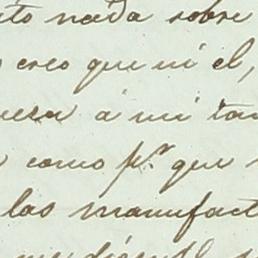 nada sobre
creo que ni el,
á mi tan
como pr. que
las manufact